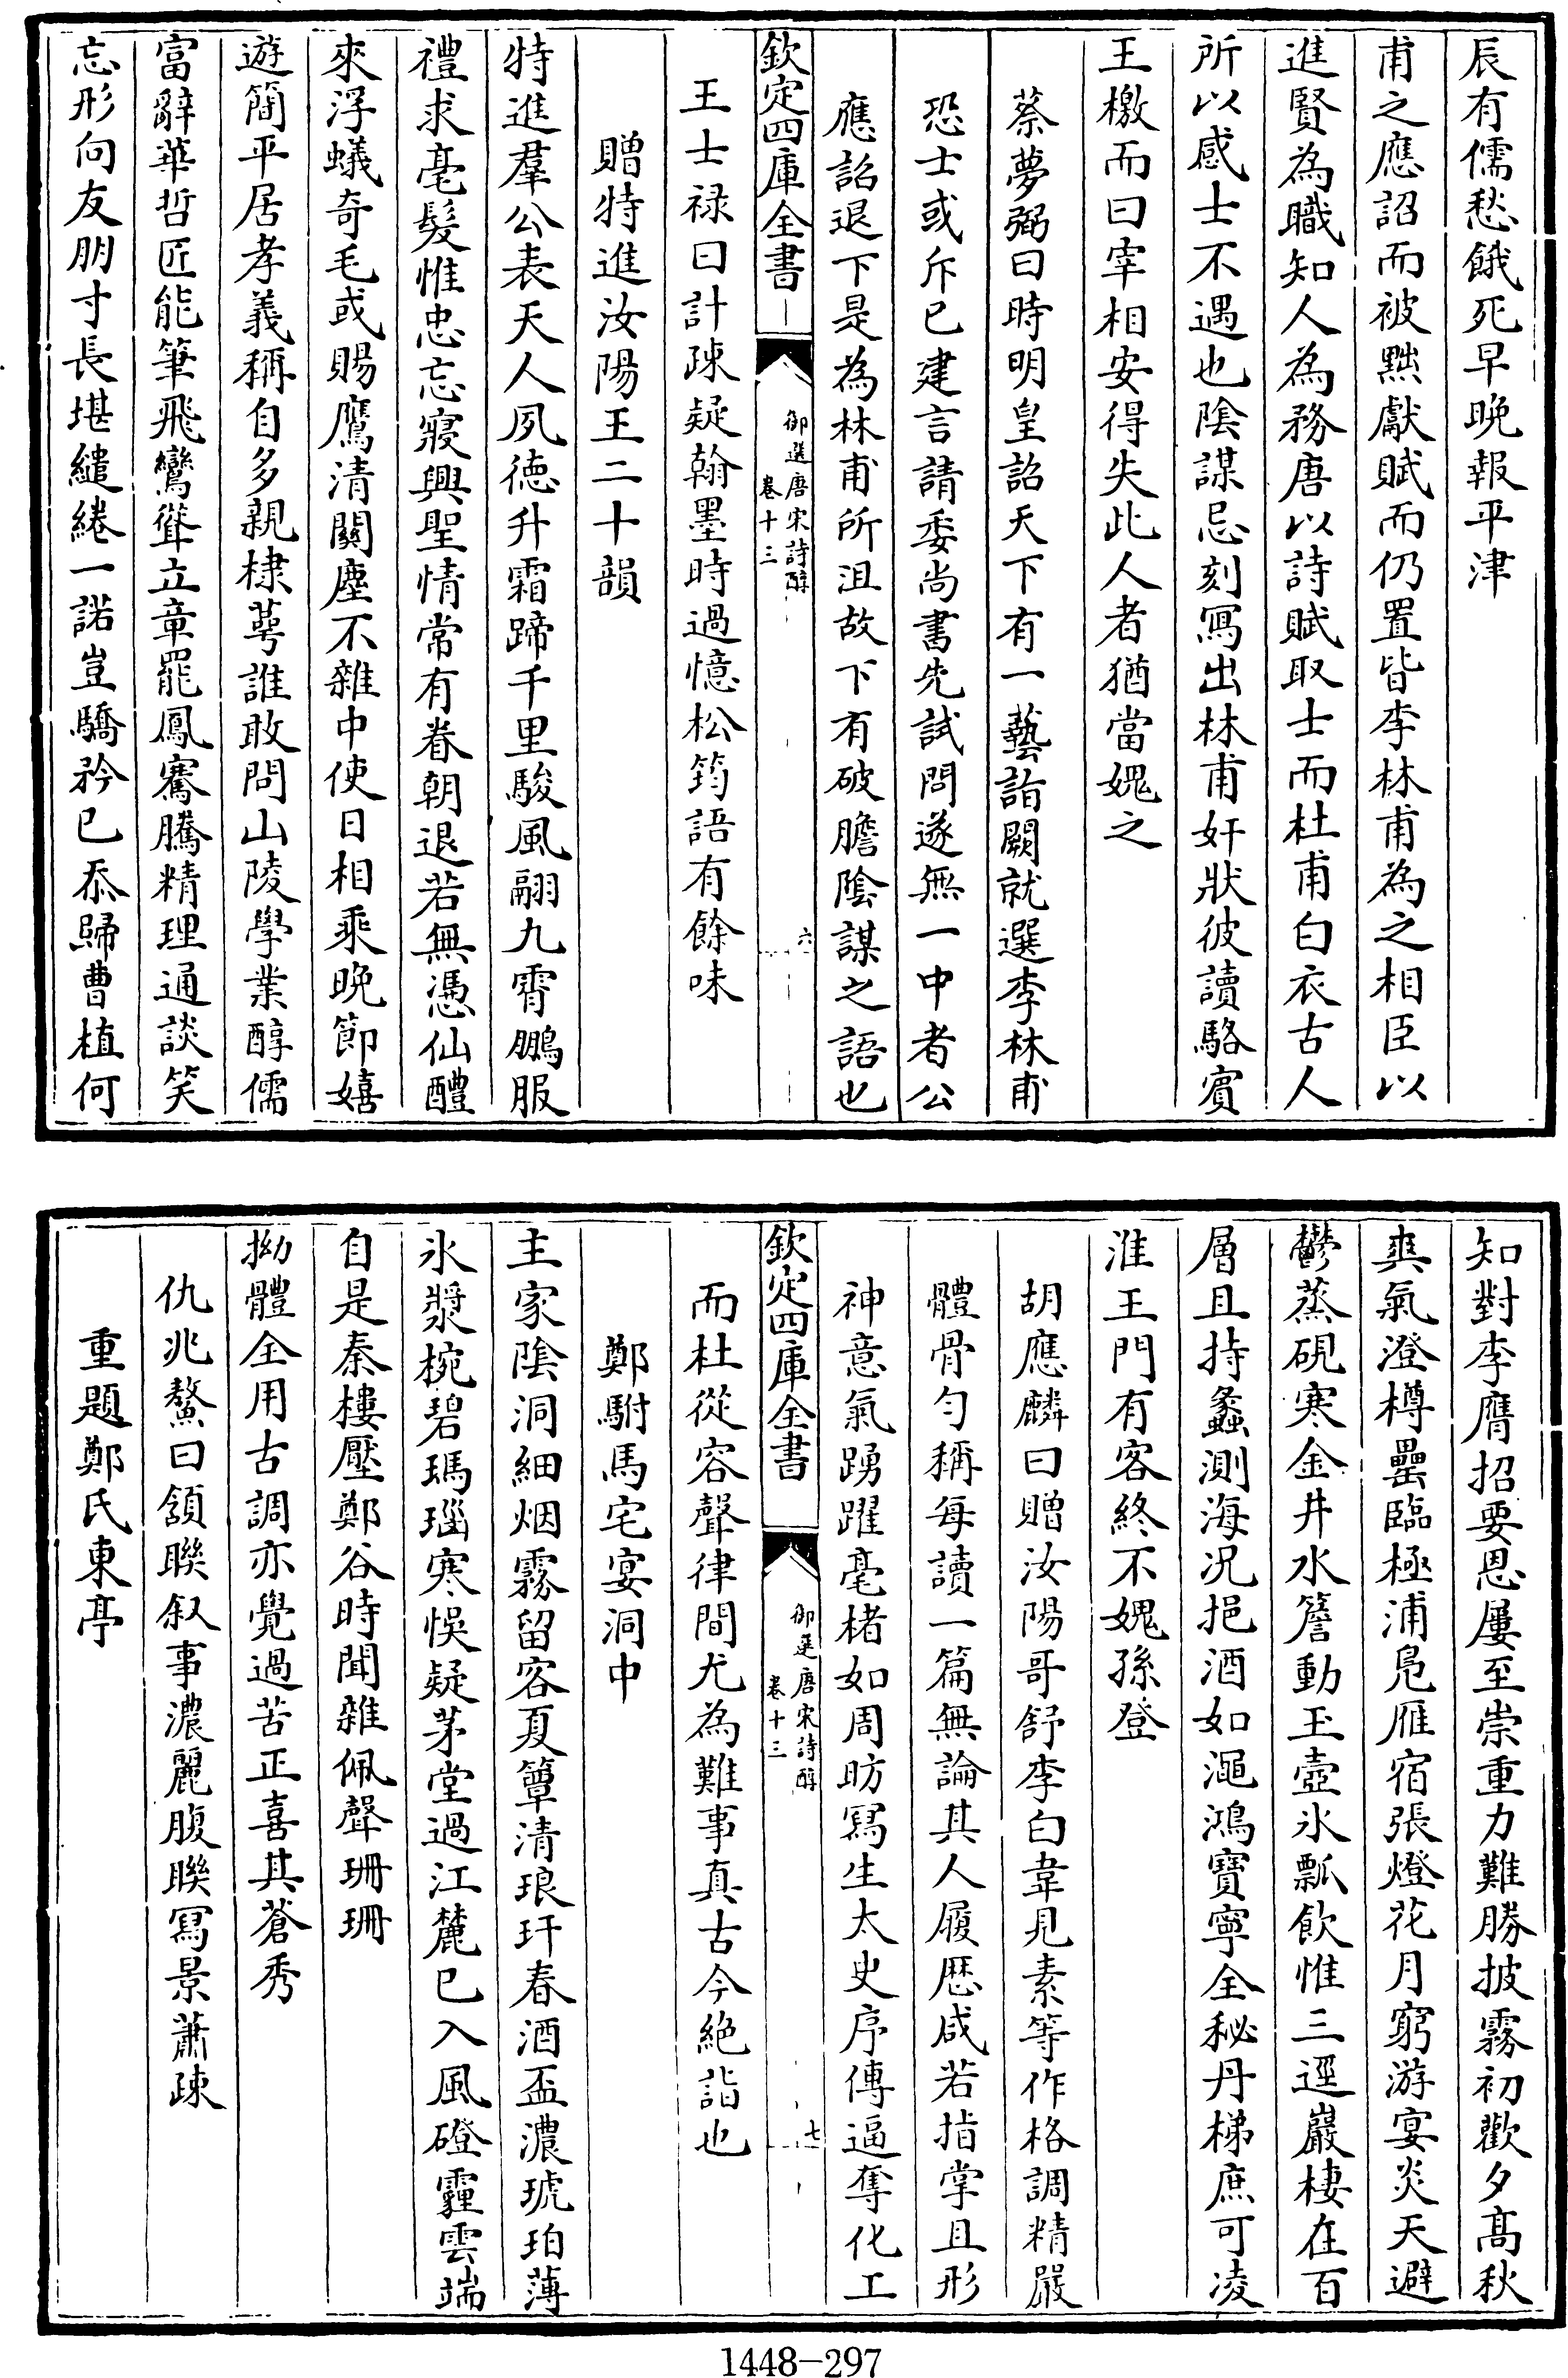 辰有儒愁餓死早晚報平津
甫之應詔而被黜獻賦而仍置皆李林甫為之相臣以
進賢為職知人為務唐以詩賦取士而杜甫白衣古人
所以感士不遇也陰謀忌刻寫出林甫奸狀彼讀駱賓
王檄而曰宰相安得失此人者猶當媿之
蔡夢弼曰時明皇詔天下有一藝詣闕就選李林甫
恐士或斥已建言請委尚書先試問遂無一中者公
應詔退下是為林甫所沮故下有破膽陰謀之語也
欽定四庫全書
御選唐宋詩醇
卷十三
六
王士禄曰計疎疑翰墨時過憶松筠語有餘味
贈特進汝陽王二十韻
特進羣公表天人夙德升霜蹄千里駿風翮九霄鵬服
禮求毫髮惟忠忘寢興聖情常有眷朝退若無憑仙醴
來浮蟻奇毛或賜鷹清關塵不雜中使日相乘晚節嬉
遊簡平居孝義稱自多親棣萼誰敢問山陵學業醇儒
富辭華哲匠能筆飛鸞聳立章罷鳳騫騰精理通談笑
忘形向友朋寸長堪繾綣一諾豈驕矜已忝歸曹植何
知對李膺招要恩屢至崇重力難勝披霧初歡夕高秋
爽氣澄樽罍臨極浦鳧雁宿張燈花月窮游宴炎天避
鬱蒸硯寒金井水簷動玉壺氷瓢飲惟三逕巖棲在百
層且持蠡測海况挹酒如澠鴻寶寧全秘丹梯庶可凌
淮王門有客終不媿孫登
胡應麟曰贈汝陽哥舒李白韋見素等作格調精嚴
體骨勻稱每讀一篇無論其人履歷咸若指掌且形
神意氣踴躍毫楮如周昉寫生太史序傳逼奪化工
欽定四庫全書
御選唐宋詩醇
卷十三
七
而杜從容聲律間尤為難事真古今絶詣也
鄭駙馬宅宴洞中
主家陰洞細烟霧留客夏簟清琅玕春酒盃濃琥珀薄
氷漿椀碧瑪瑙寒悞疑茅堂過江麓已入風磴霾雲端
自是秦樓壓鄭谷時聞雜佩聲珊珊
拗體全用古調亦覺過苦正喜其蒼秀
仇兆鰲曰頷聯叙事濃麗腹聯寫景蕭疎
重題鄭氏東亭
1448-297